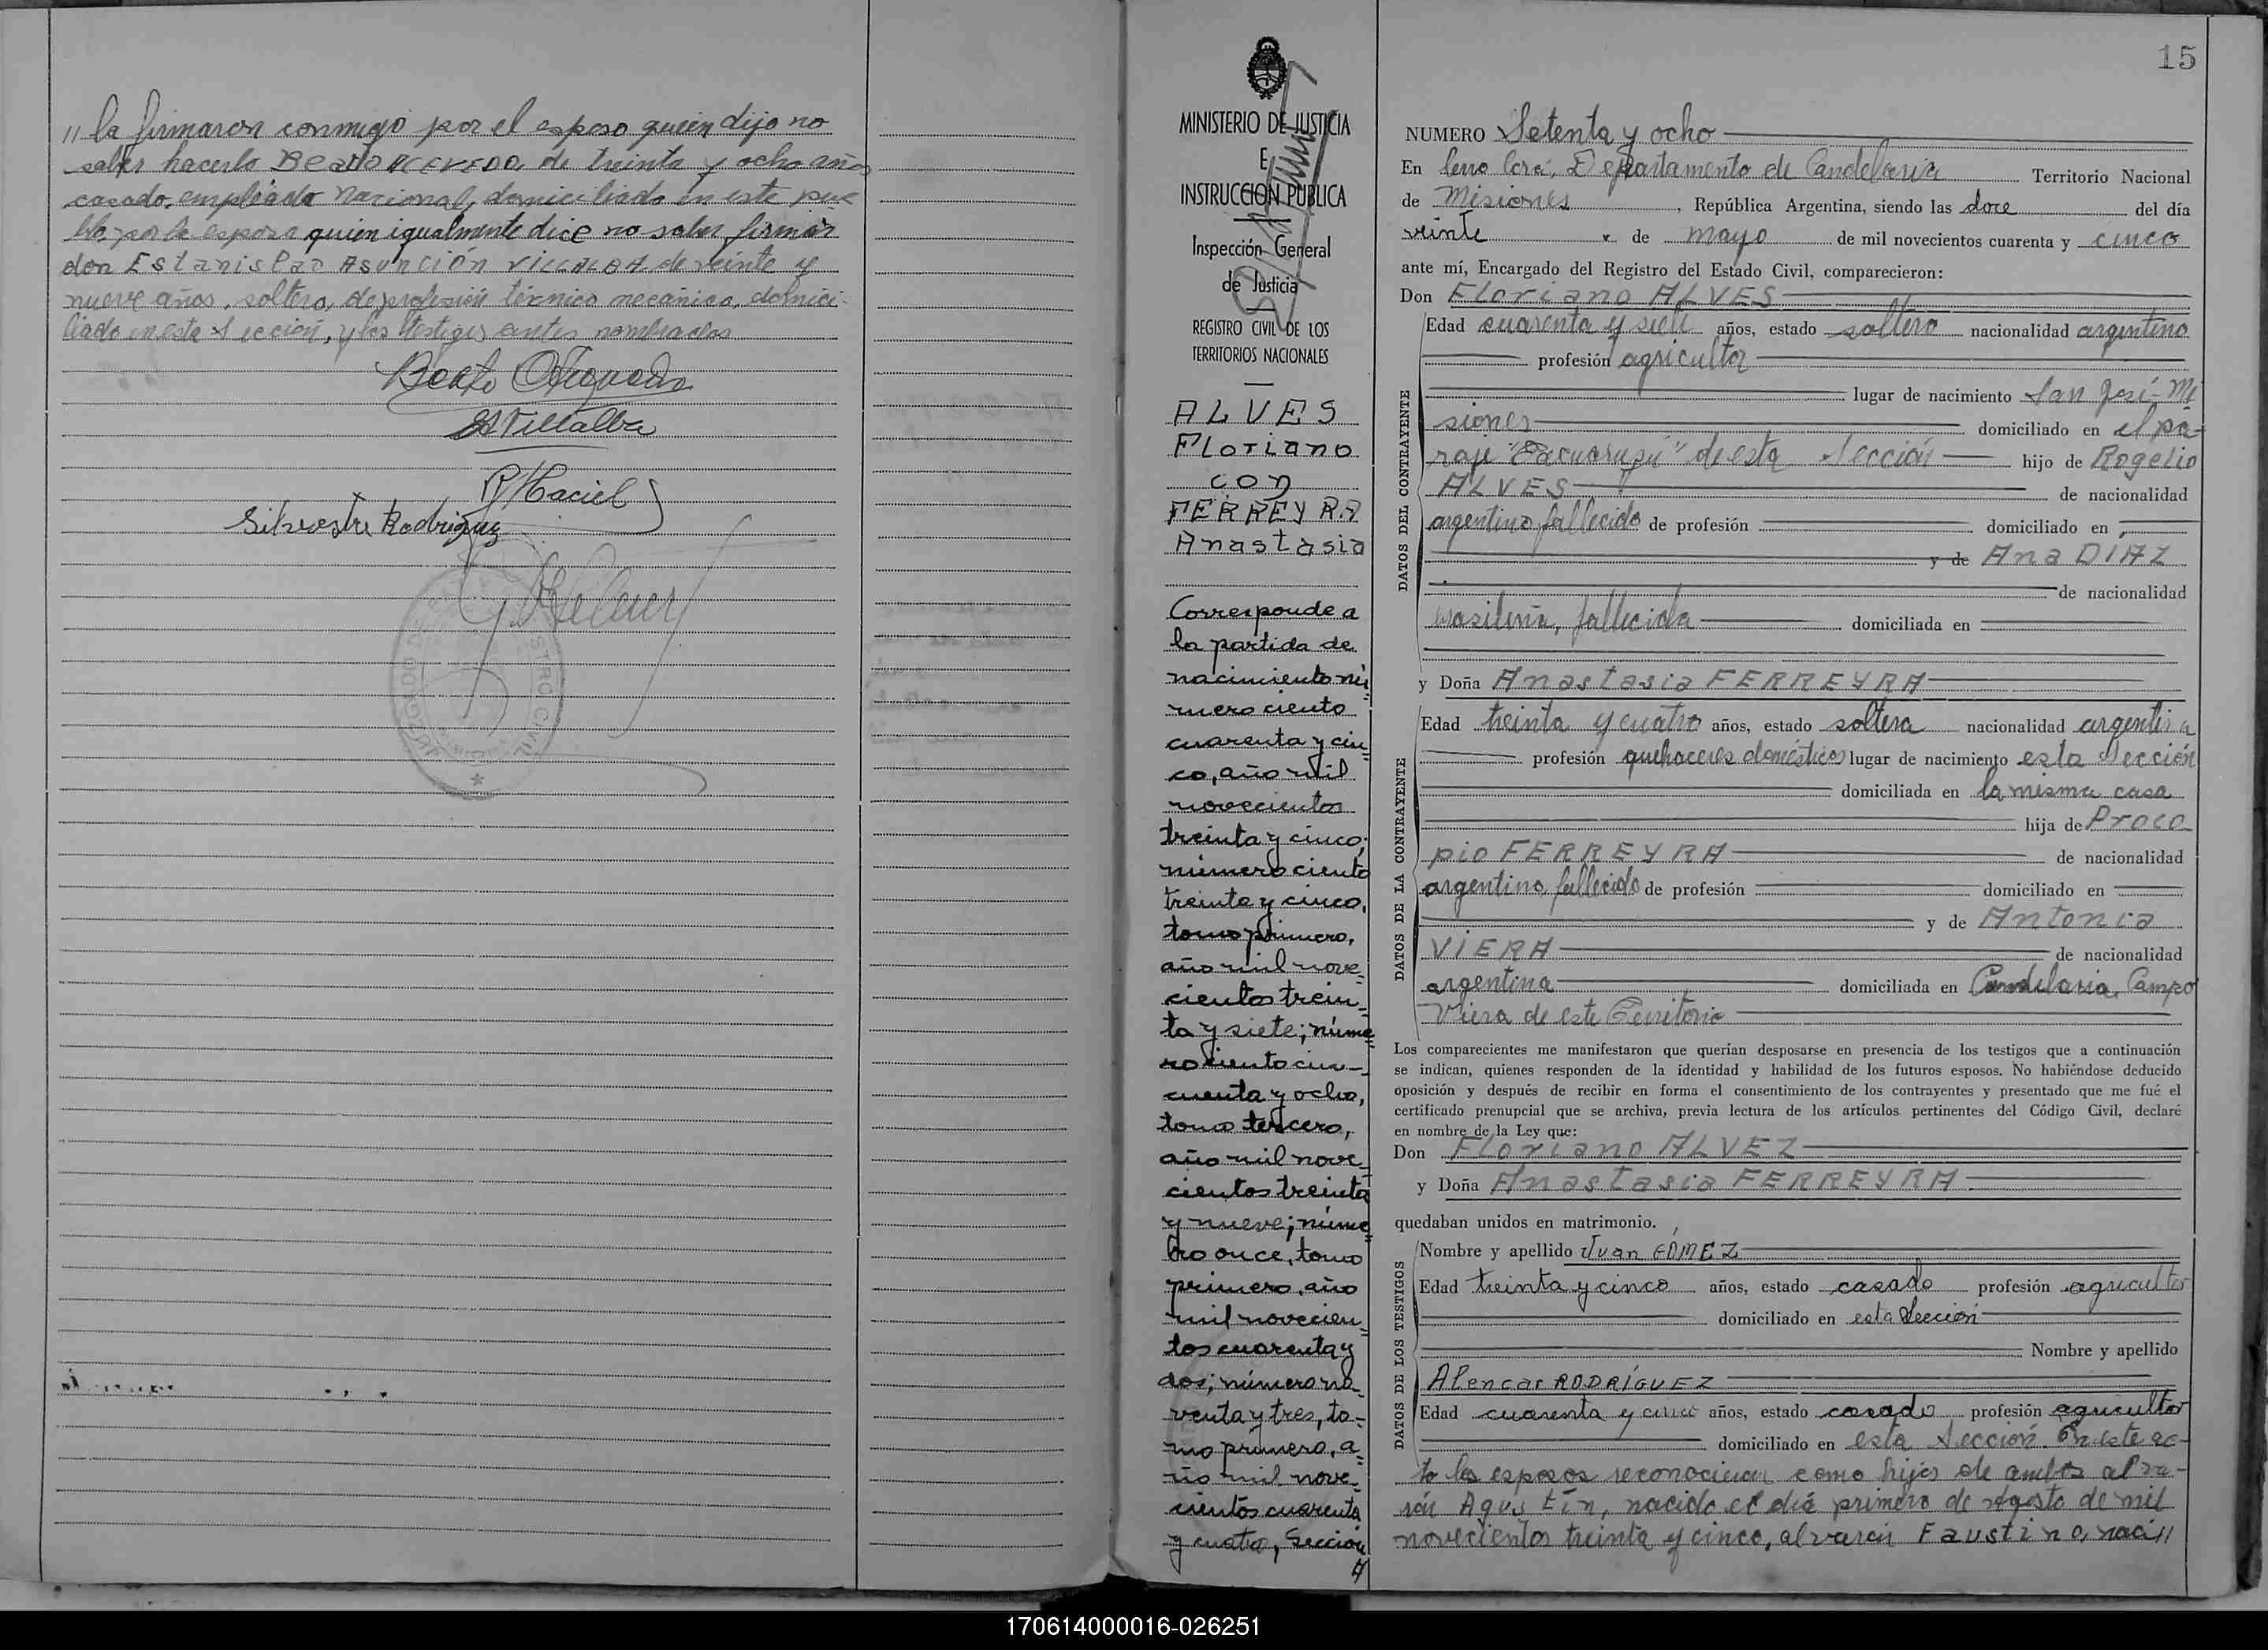 // la firmaron conmigo por el esposo quien dijo no
saber hacerlo Beato ACEVEDO, de treinta y ocho años
casado, empleado Nacional, domiciliado en este pue
blo, por la esposa quien igualmente dice no saber firmar
don Estanislao Asunción VILLALBA de veinte y
nueve años, soltero, de profesión técnico mecánico, domici-
liado en esta Sección, y los testigos antes nombrados
EA Villalba
R Maciel
Silvestre Rodriguez
15
MINISTERIO DE JUSTICIA
E
INSTRUCCION PUBLICA
Inspección General
de Justicia
REGISTRO CIVIL DE LOS
TERRITORIOS NACIONALES
ALVES
Floriano
con
FERREYRA
Anastasia
Corresponde a
la partida de
nacimiento nú-
mero ciento
cuarenta y cin-
co, año mil
novecientos
treinta y cinco;
número ciento
treinta y cinco,
tomo primero,
año mil nove-
cientos trein-
ta y siete; núme-
ro ciento cin-
cuenta y ocho,
tomo tercero,
año mil nove-
cientos treinta
y nueve; núme-
ro once, tomo
primero, año
mil novecien-
tos cuarenta y
dos; número no-
venta y tres, to-
mo primero, a-
ño mil nove-
cientos cuarenta
y cuatro, Sección
NUMERO Setenta y ocho
En Cerro Corá, Departamento de Candelaria Territorio Nacional
de Misiones, República Argentina, siendo las doce del día
veinte de mayo de mil novecientos cuarenta y cinco
ante mí, Encargado del Registro del Estado Civil, comparecieron:
Don Floriano ALVES
DATOS DEL CONTRAYENTE
Edad cuarenta y siete años, estado soltero nacionalidad argentino
profesión agricultor
lugar de nacimiento San José-Mi
siones domiciliado en el pa-
raje de esta Sección hijo de Rogelio
ALVES de nacionalidad
argentino fallecido de profesión domiciliado en
y de Ana DIAZ
de nacionalidad
brasileña, fallecida domiciliada en
y Doña Anastasia FERREYRA
DATOS DE LA CONTRAYENTE
Edad treinta y cuatro años, estado soltera nacionalidad argentina
profesión quehaceres domésticos lugar de nacimiento esta Sección
domiciliada en la misma casa
hija de Proco
pio FERREYRA de nacionalidad
argentino, fallecido de profesión domiciliado en
y de Antonia
VIERA de nacionalidad
argentina domiciliada en Candelaria, Campo
Viera de este Territorio
Los comparecientes me manifestaron que querían desposarse en presencia de los testigos que a continuación
se indican, quienes responden de la identidad y habilidad de los futuros esposos. No habiéndose deducido
oposición y después de recibir en forma el consentimiento de los contrayentes y presentado que me fué el
certificado prenupcial que se archiva, previa lectura de los artículos pertinentes del Código Civil, declaré
en nombre de la Ley que:
Don Floriano ALVEZ
y Doña Anastasia FERREYRA
quedaban unidos en matrimonio.
DATOS DE LOS TESTIGOS
Nombre y apellido Juan GÓMEZ
Edad treinta y cinco años, estado casado profesión agricultor
domiciliado en esta Sección
Nombre y apellido
Alencar RODRÍGUEZ
Edad cuarenta y cinco años, estado casado profesión agricultor
domiciliado en esta Sección. En este ac-
to los esposos reconocieron como hijos de ambos al va-
rón Agustín, nacido el día primero de Agosto de mil
novecientos treinta y cinco, al varón Faustino, naci//
170614000016-026251